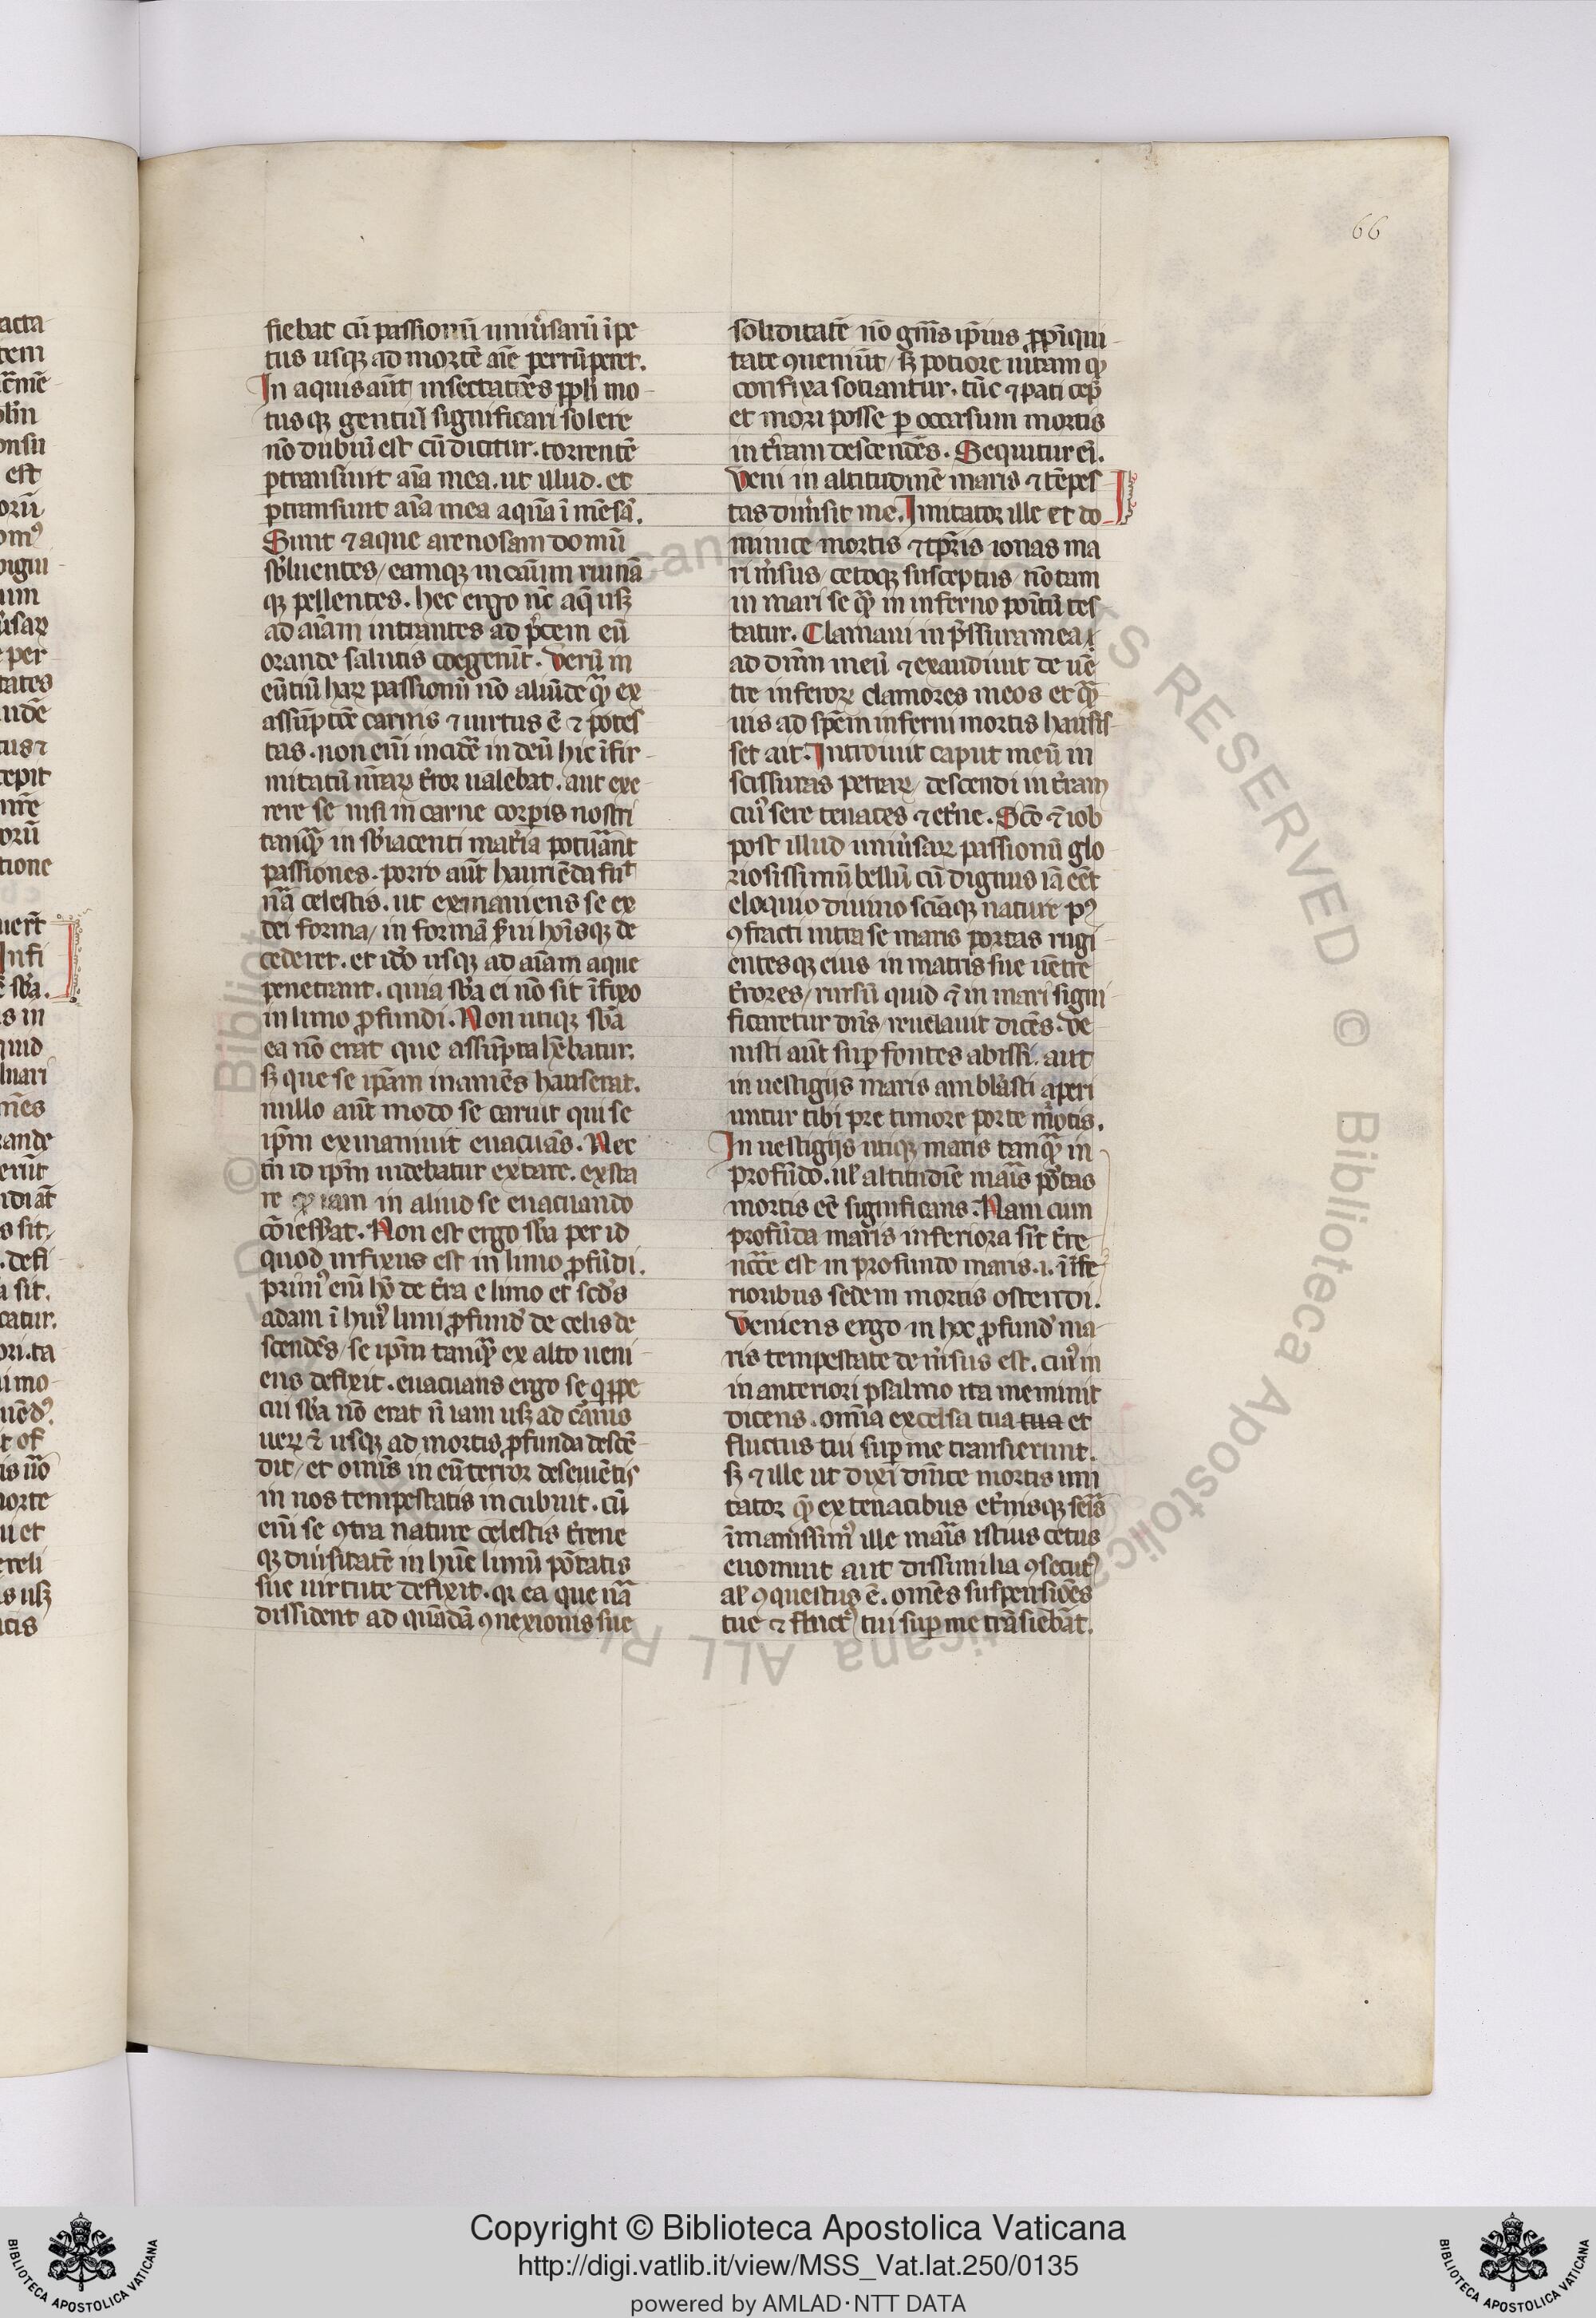 66
fiebat cū passionū uniu̾sarū īpe
tus usqꝫ ad mortē aīe perrūperet.
In aquis aūt insectatiōes ppłi mo
tusqꝫ gentiū significari solere
nō dubiū est cū dicitur. torrentē
ꝑtransiuit aīa mea. ut illud. et
ꝑtransiuit aīa mea aquā ī mēsā.
Sunt ⁊ aque arenosam domū
sb̾luentes / eamqꝫ in casum ruinā
qꝫ pellentes. hec ergo nc̄ aq̄ usqꝫ
ad aīam intrantes ad p̾cem eū
orande salutis coegerūt. Verū in
eūtiū haꝝ passionū nō aliūde qᷓꝫ ex
assūptōe carnis ⁊ uirtus ē ⁊ potes
tas. non enī incidē in deū hic īfir
mitatū nr̄aꝝ t̾ror ualebat. aut exe
rere se nisi in carne corꝑis nostri
tanqᷓꝫ in sb̾iacenti mat̾ia potuān̄t
passiones. porro aūt haurīēda fuit
nᷓa celestis. ut exinaniens se ex
dei forma / in formā s̾ui hoīsqꝫ de
cederet. et idō usqꝫ ad aīam aque
penetrant. quia sb̾a ei nō sit īfixo
in limo ꝓfundi. Non utiqꝫ sb̾a
ea nō erat que assūpta hēbatur.
sꝫ que se ipām inaniēs hauserat.
nullo aūt modo se caruit qui se
ipm̄ exinaniuit euacuās. Nec
tn̄ id ipm̄ uidebatur extare. exsta
re qꝫ iam in aliud se euacuando
cōiesserat. Non est ergo sb̾a per id
quod infixus est in limo ꝓfūdi.
primꝰ enī hō de t̾ra e limo et scd̾s
adam ī huiꝰ limi ꝓfund̾ de celis de
scendēs / se ipm̄ tanqᷓꝫ ex alto ueni
ens defixit. euacuans ergo se qꝑpe
cui sb̾a nō erat ñ iam usqꝫ ad carnis
ueꝝ ē usqꝫ ad mortis ꝓfunda descē
dit / et omīs in eū terror deseuiētis
in nos tempestatis incubuit. cū
enī se ꝯtra nature celestis t̾rene
qꝫ diu̾sitatē in hūc limū potātis
sue uirtute defixit. qꝛ ea que nᷓa
dissident ad quādā ꝯnexionis sue
soliditatē nō gn̄is ipīus ꝓpīqui
tate ꝯueniūt / sꝫ potiore uitam qꝫ
confixa sotiantur. tūc ⁊ pati cep̄
et mori posse ꝑ occasum mortis
in t̾ram descendēs. Sequitur eī.
Veni in altitudinē maris ⁊ tēpes
tas dim̾sit me. Imitator ille et do
minice mortis ⁊ tp̄ris ionas ma
ri m̾sus / cetoqꝫ susceptus / nō tam
in mari se qᷓꝫ in inferno poītū tes
tatur. Clamaui in p̄ssura mea /
ad dnm̄ meū ⁊ exaudiuit de uē
tre inferoꝝ clamores meos et qᷓꝫ
uis ad spēm inferni mortis hausis
set ait. Introiuit caput meū in
scissuras petraꝝ / descendi in t̾ram
cuiꝰ sere tenaces ⁊ et̾ne. Scō ⁊ iob
post illud uniu̾saꝝ passionū glo
riosissimū bellū cū dignus iā eēt
eloquio diuino scīaqꝫ nature pꝰ
ꝯfracti intra se maris portas rugi
entesqꝫ eius in matris sue uētre
t̾rores / rursū quid ⁊ in mari signi
ficaretur dn̄s / reuelauit dicēs. Ve
nisti aūt suꝑ fontes abissi. aut
in uestigijs maris amblasti aperi
untur tibi pre timore porte mortis.
In uestigijs utiqꝫ maris tanqᷓꝫ in
profūdo. ul̾ altitudīe mais portas
mortis eē significans. Nam cum
profūda maris inferiora sīt t̾re
ncc̄e est in profundo maris .i. īfe
rioribus sedem mortis ostendi.
Veniens ergo in hoc ꝓfund̾ ma
ris tempestate dem̾sus est. cuiꝰ in
in anteriori psalmo ita meminit
dicens. omīa excelsa tua tua et
fluctus tui suꝑ me transierunt.
sꝫ ⁊ ille ut dixi dn̄ice mortis imi
tator qᷓꝫ ex tenacibus et̾nisqꝫ seris
īmanissimꝰ ille mais istius cetus
euomuit aut dissimilia ꝯsecutꝰ
al̾ ꝯquestus ē. omēs suspensiōes
tue ⁊ fluctꝰ tui suꝑ me trāsiebāt.
Copyright © Biblioteca Apostolica Vaticana
http://digi.vatlib.it/view/MSS_Vat.lat.250/0135
powered by AMLAD·NTT DATA
BIBLIOTECA APOSTOLICA VATICANA
BIBLIOTECA APOSTOLICA VATICANA